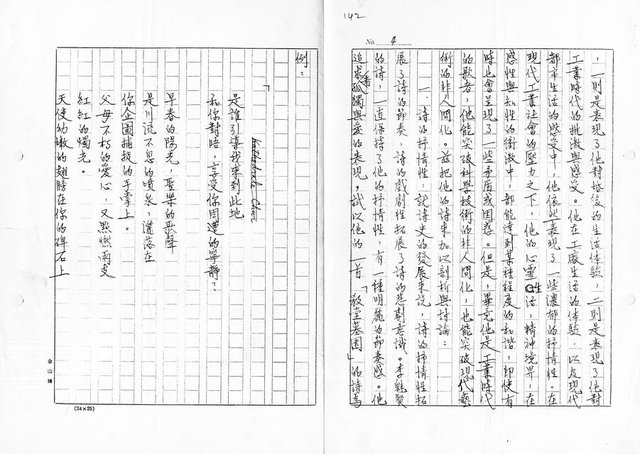 142
No. 4
，一則是表現了他對戰後的生活体驗，二則是表現了他對
工業時代的批激與感受。他在工廠生活的体驗，以及現代
都市生活的感受中，他依然表現了一些濃郁的抒情性。在
現代工業社會的壓力之下，他的心靈生活，精神境界，在
感性與知性的衝激中，都能達到某種程度的和諧，即使有
時也會呈現了一些矛盾或困惑。但是，畢竟他是工業時代
的歌者，他能突破科學技術的非人間化，也能突破現代藝
術的非人間化。茲把他的詩來加以剖析與討論：
一 詩的抒情性：就詩史的發展來說，詩的抒情性拓
展了詩的節奏，詩的戲劇性拓展了詩的悲劇意識。李魁賢
的詩，一直保持了他的抒情性，有一種明麗的節奏感。他
追求孤獨與愛的表現，試以他的一首「教堂墓園」的詩為
例：
「
是誰引導我來到此地
和你對晤，享受你周遭的寧靜？
早春的陽光，聖樂的歌聲
是川流不息的噴泉，灑落在
你企圖捕捉的手掌上。
父母不朽的愛心，又點燃兩支
紅紅的燭光。
天使幼嫩的翅膀在你的碑石上
金山牌
(24×25)